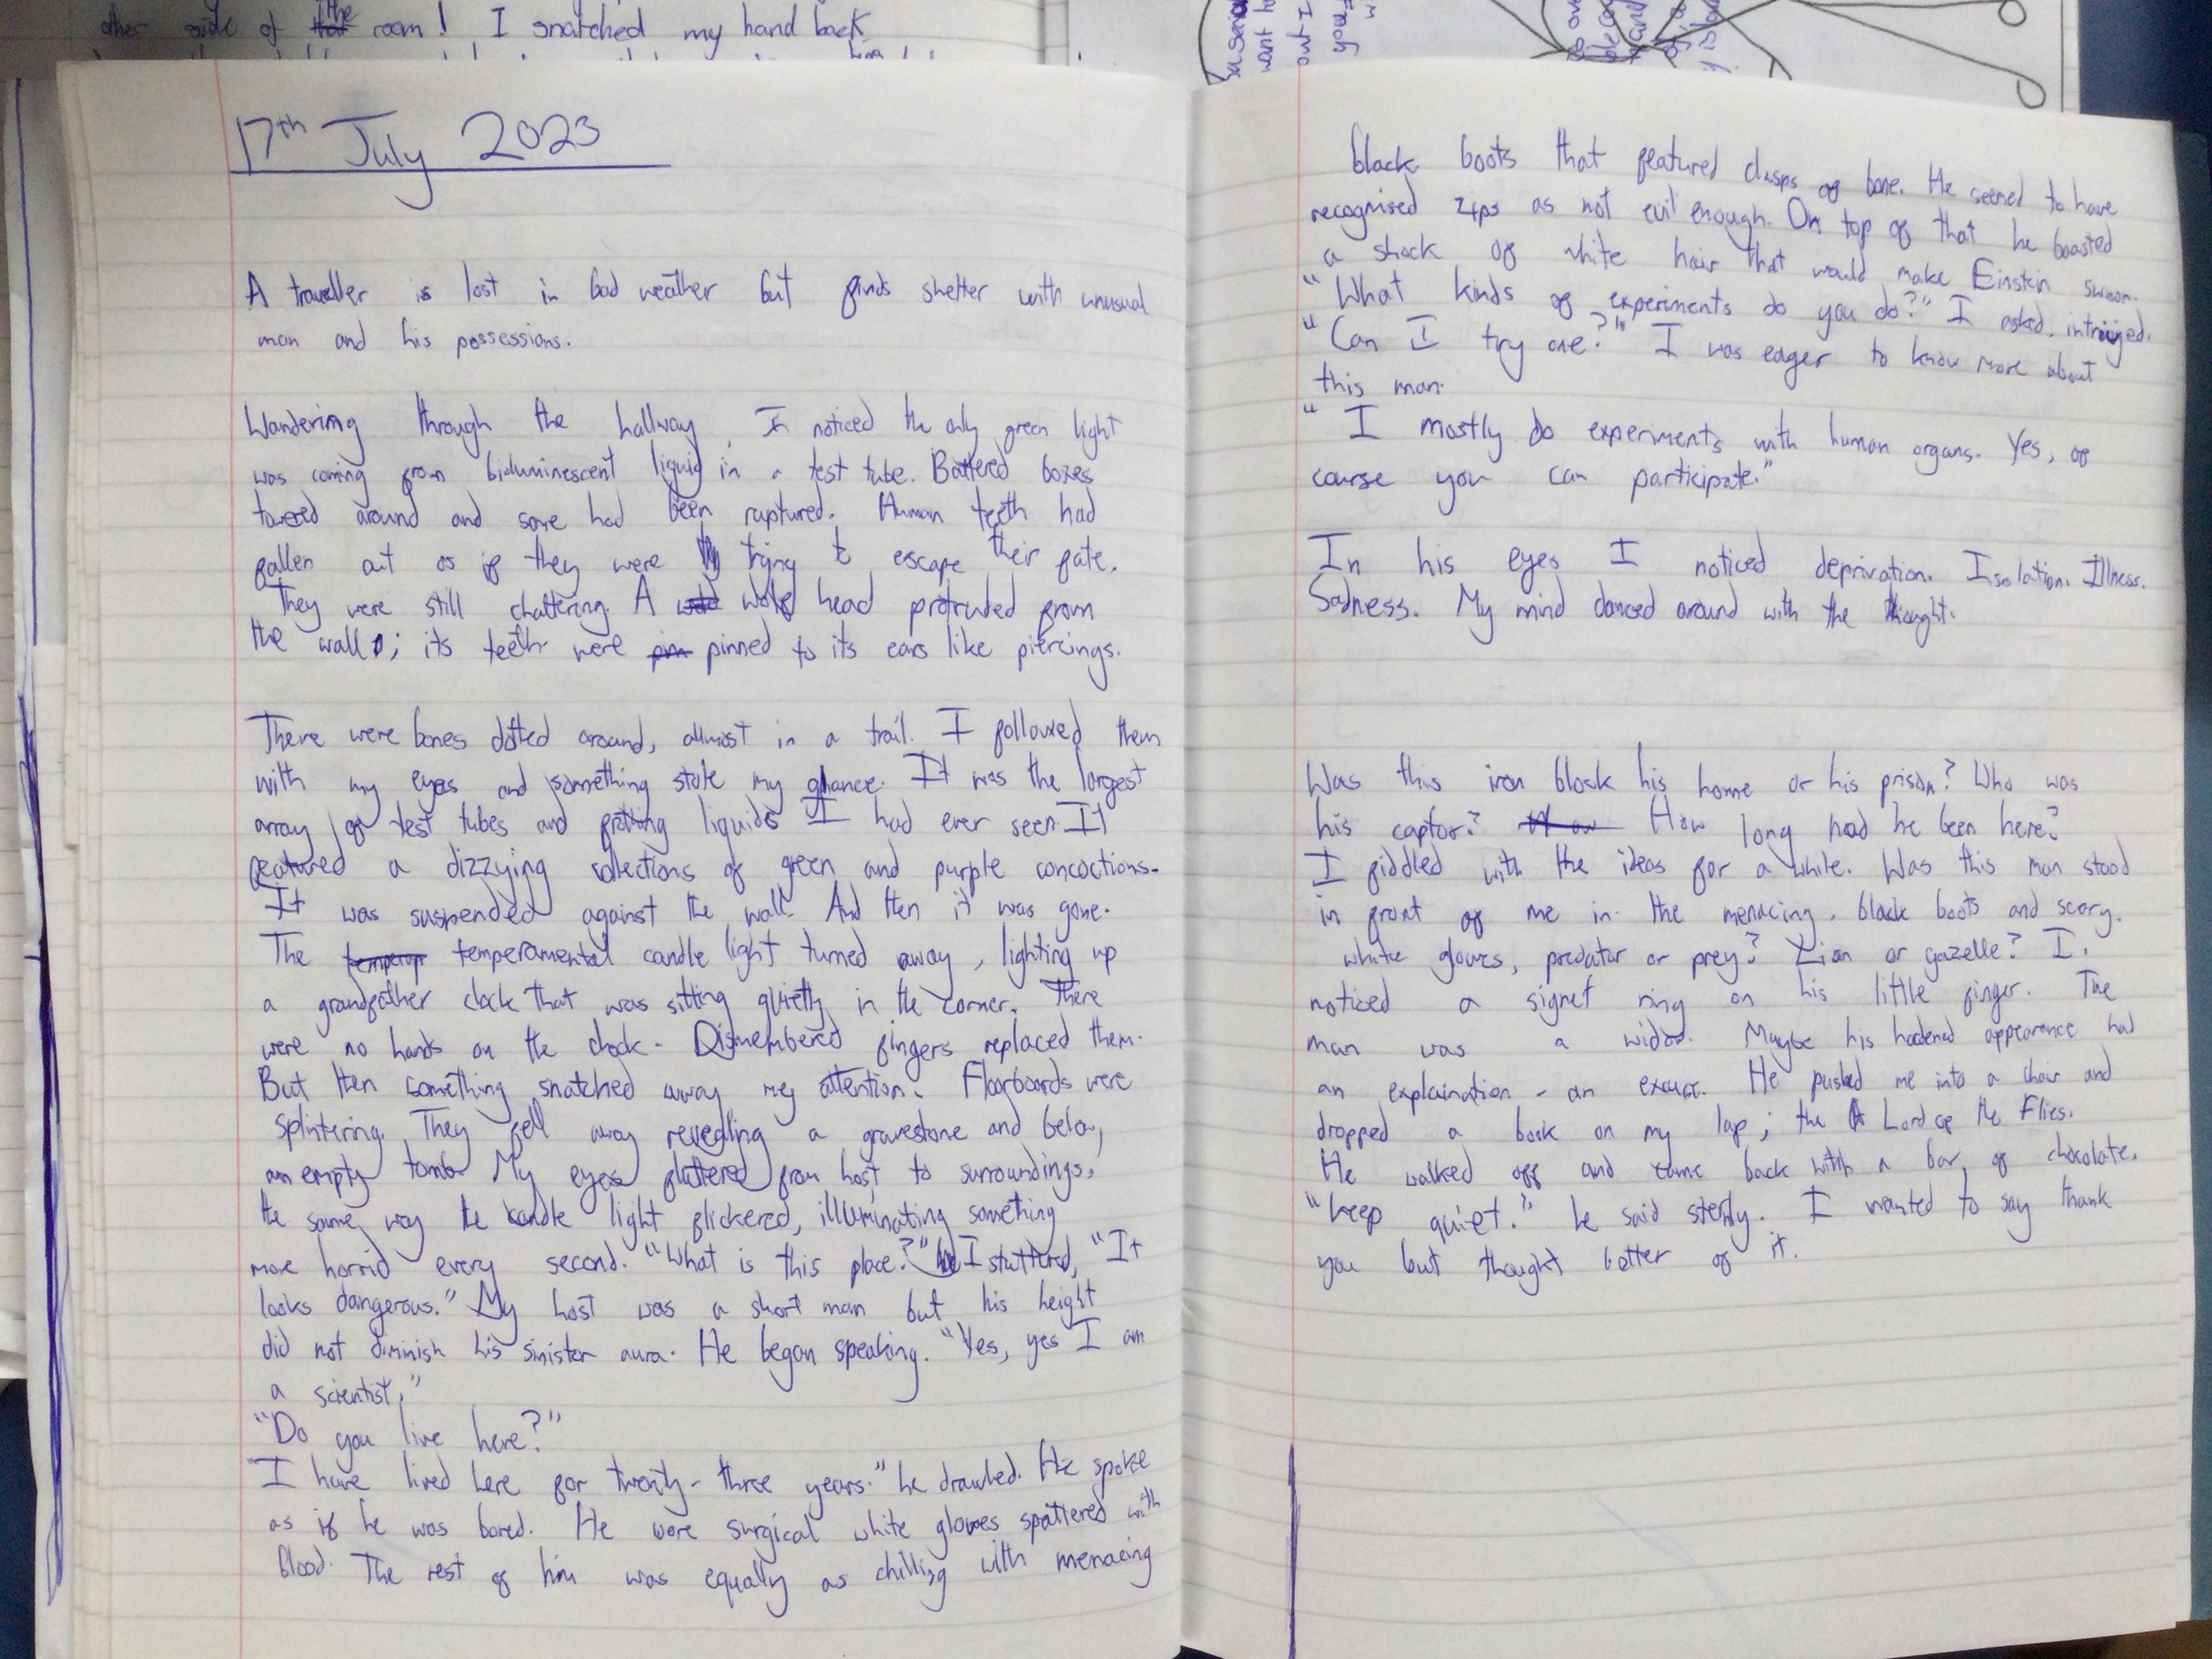 other side of the room! I snatched my hand back
17th July 2023
A traveller is lost in bad weather but finds shelter with unusual
man and his possessions.
Wandering through the hallway, I noticed the only green light
was coming from bioluminescent liquid in a test tube. Battered boxes
towered around and some had been ruptured. Human teeth had
fallen out as if they were trying to escape their fate.
They were still chattering. A wolf head protruded from
the wall; its teeth were pinned to its ears like piercings.
There were bones dotted around, almost in a trail. I followed them
with my eyes and something stole my glance. It was the largest
array of test tubes and frothing liquids I had ever seen. It
featured a dizzying collections of green and purple concoctions.
It was suspended against the wall. And then it was gone.
The temperamental candle light turned away, lighting up
a grandfather clock that was sitting quietly in the corner. There
were no hands on the clock. Dismembered fingers replaced them.
But then something snatched away my attention. Floorboards were
splintering. They fell away revealing a gravestone and below,
an empty tomb. My eyes fluttered from host to surroundings,
the same way the candle light flickered, illuminating something
more horrid every second. "What is this place?" I stuttered, "It
looks dangerous." My host was a short man but his height
did not diminish his sinister aura. He began speaking. "Yes, yes I am
a scientist."
"Do you live here?"
"I have lived here for twenty-three years." he drawled. He spoke
as if he was bored. He wore surgical white gloves spattered with
blood. The rest of him was equally as chilling with menacing
black boots that featured clasps of bone. He seemed to have
recognised zips as not evil enough. On top of that he boasted
a shock of white hair that would make Einstein swoon.
"What kinds of experiments do you do?" I asked, intriuged.
"Can I try one?" I was eager to know more about
this man.
"I mostly do experiments with human organs. Yes, of
course you can participate."
In his eyes I noticed deprivation. Isolation. Illness.
Sadness. My mind danced around with the thought.
Was this iron block his home or his prison? Who was
his captor? How long had he been here?
I fiddled with the ideas for a while. Was this man stood
in front of me in the menacing, black boots and scary,
white gloves, predator or prey? Lion or gazelle? I
noticed a signet ring on his little finger. The
man was a widow. Maybe his hardened appearance had
an explaination - an excuse. He pushed me into a chair and
dropped a book on my lap; the Lord of the Flies.
He walked off and came back with a bar of chocolate.
"Keep quiet." he said sternly. I wanted to say thank
you but thought better of it.